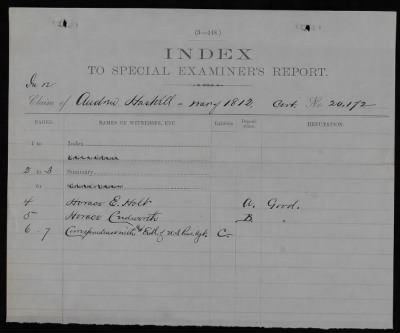 (3—446.)
INDEX
TO SPECIAL EXAMINER'S REPORT.
In re
Claim of Audrie Haskell - navy 1812, Cert. No. 20,172
PAGES. NAMES OF WITNESSES, ETC. Exhibits. Depositions. REPUTATION.
1 to Index
2 to 3 Summary
to
4 Horace E. Holt A. Good.
5 Horace Cudworth B "
6 - 7 Correspondence with of C.